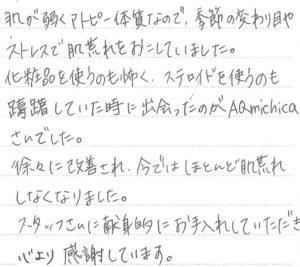 肌が弱くアトピー体質なので、季節の変わり目や
ストレスで肌荒れをおこしていました。
化粧品を使うのも怖く、ステロイドを使うのも
躊躇していた時に出会ったのがAQmichica
さんでした。
徐々に改善され、今ではほとんど肌荒れ
しなくなりました。
スタッフさんに献身的にお手入れしていただき
心より感謝しています。